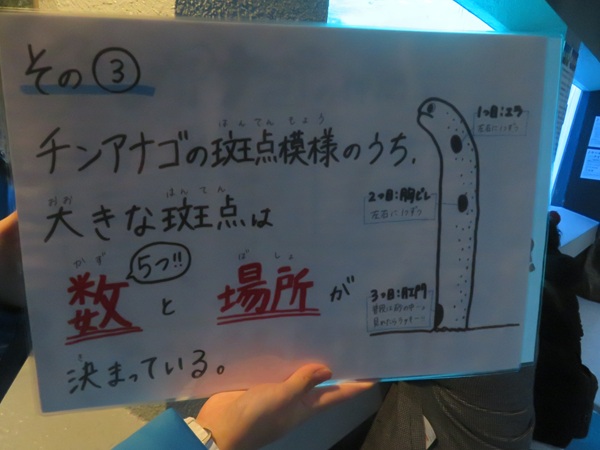 その③
チンアナゴの斑点模様のうち、
はんてんもよう
大きな斑点は
おお はんてん
5つ!!
数と場所が
かず ばしょ
決まっている。
き
1つ目:エラ
左右に1つずつ
2つ目:胸ビレ
左右に1つずつ
3つ目:肛門
普段は砂の中…